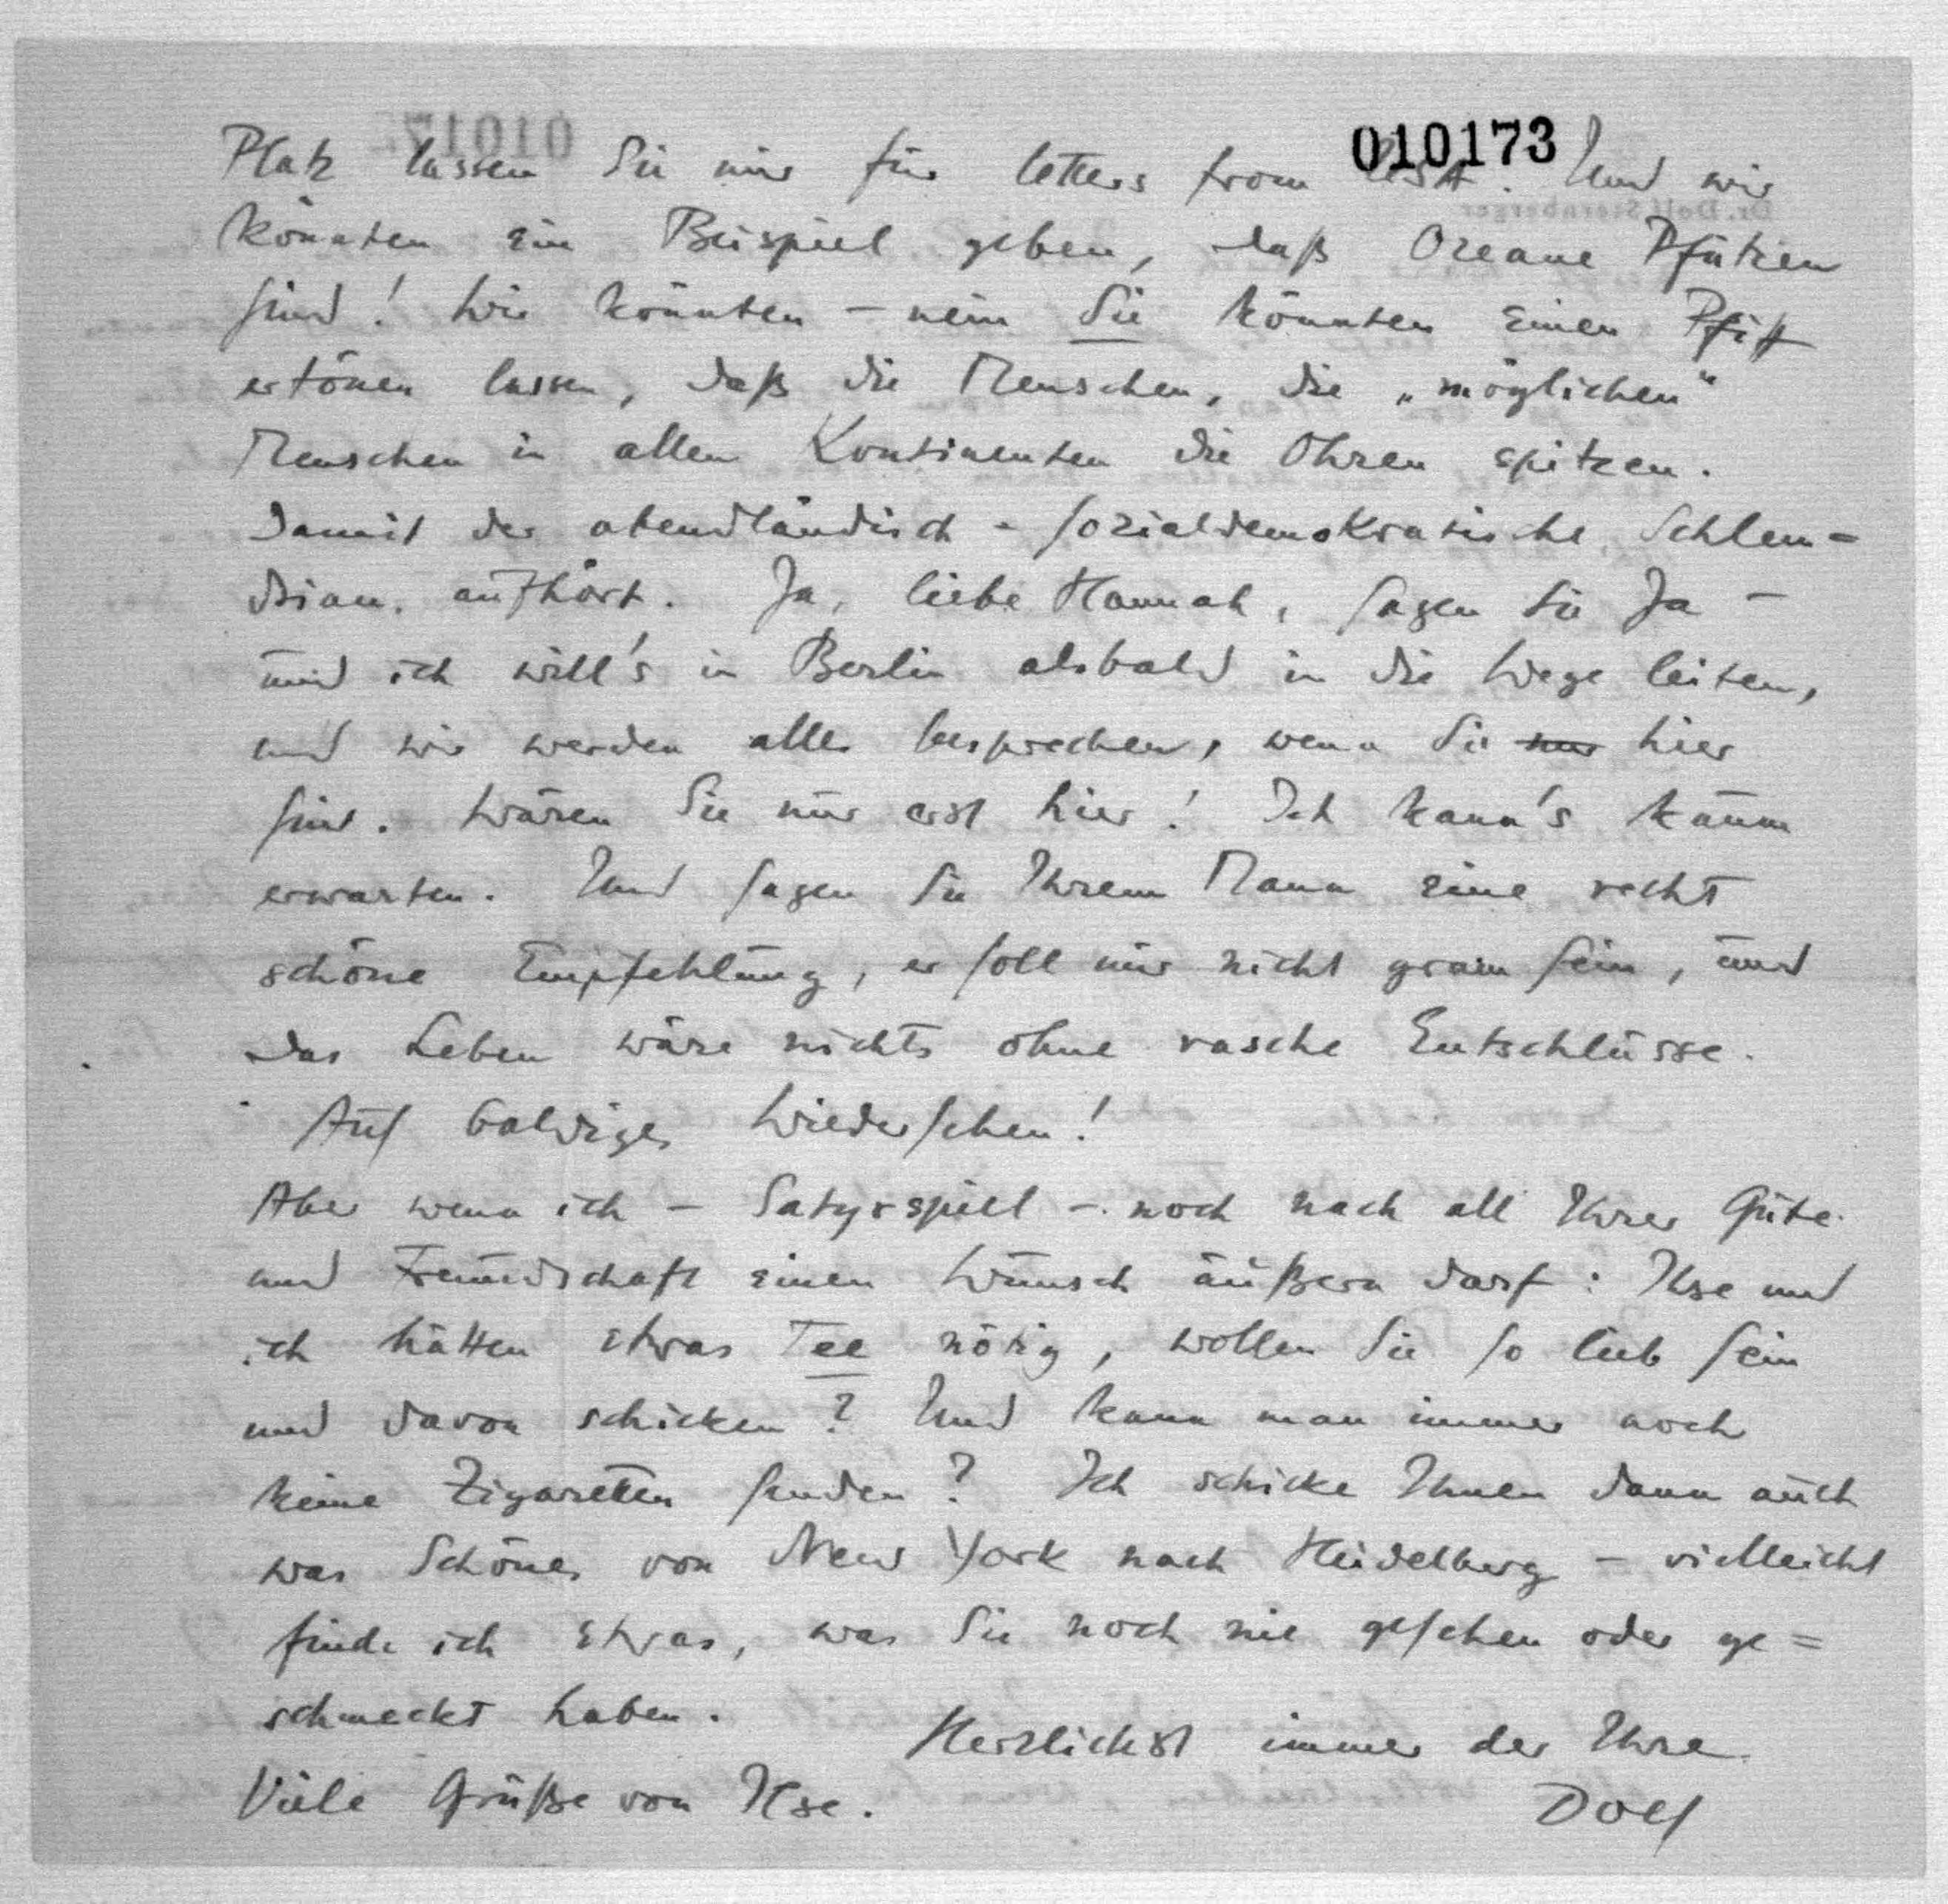 010173
Platz lassen Sie mir für letters from USA. Und wir
könnten ein Beispiel geben, daß Ozeane Pfützen
sind! Wir könnten – nein Sie könnten einen Pfiff
ertönen lassen, daß die Menschen, die „möglichen“
Menschen in allen Kontinenten die Ohren spitzen.
Damit der abendländisch-sozialdemokratische Schlen=
drian aufhört. Ja, liebe Hannah, sagen Sie Ja –
und ich will's in Berlin alsbald in die Wege leiten,
und wir werden alles besprechen, wenn Sie nur hier
sind. Wären Sie nur erst hier! Ich kann's kaum
erwarten. Und sagen Sie Ihrem Mann eine recht
schöne Empfehlung, er soll mir nicht gram sein, und
das Leben wäre nichts ohne rasche Entschlüsse.
Auf baldiges Wiedersehen!
Aber wenn ich – Satyrspiel – noch nach all Ihrer Güte
und Freundschaft einen Wunsch äußern darf: Ilse und
ich hätten etwas Tee nötig, wollen Sie so lieb sein
und davon schicken? Und kann man immer noch
keine Zigaretten senden? Ich schicke Ihnen dann auch
was Schönes von New York nach Heidelberg – vielleicht
finde ich etwas, was Sie noch nie gesehen oder ge=
schmeckt haben.
Herzlichst immer der Ihre
Dolf
Viele Grüße von Ilse.